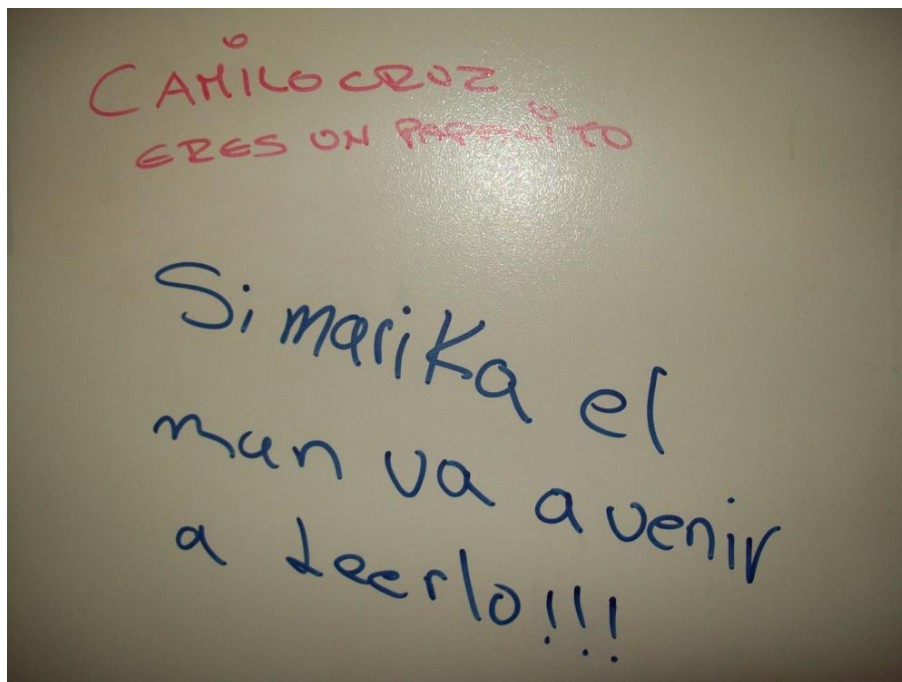 CAMILO CRUZ
ERES UN PAPACITO
Si marika el
man va a venir
a Leerlo!!!